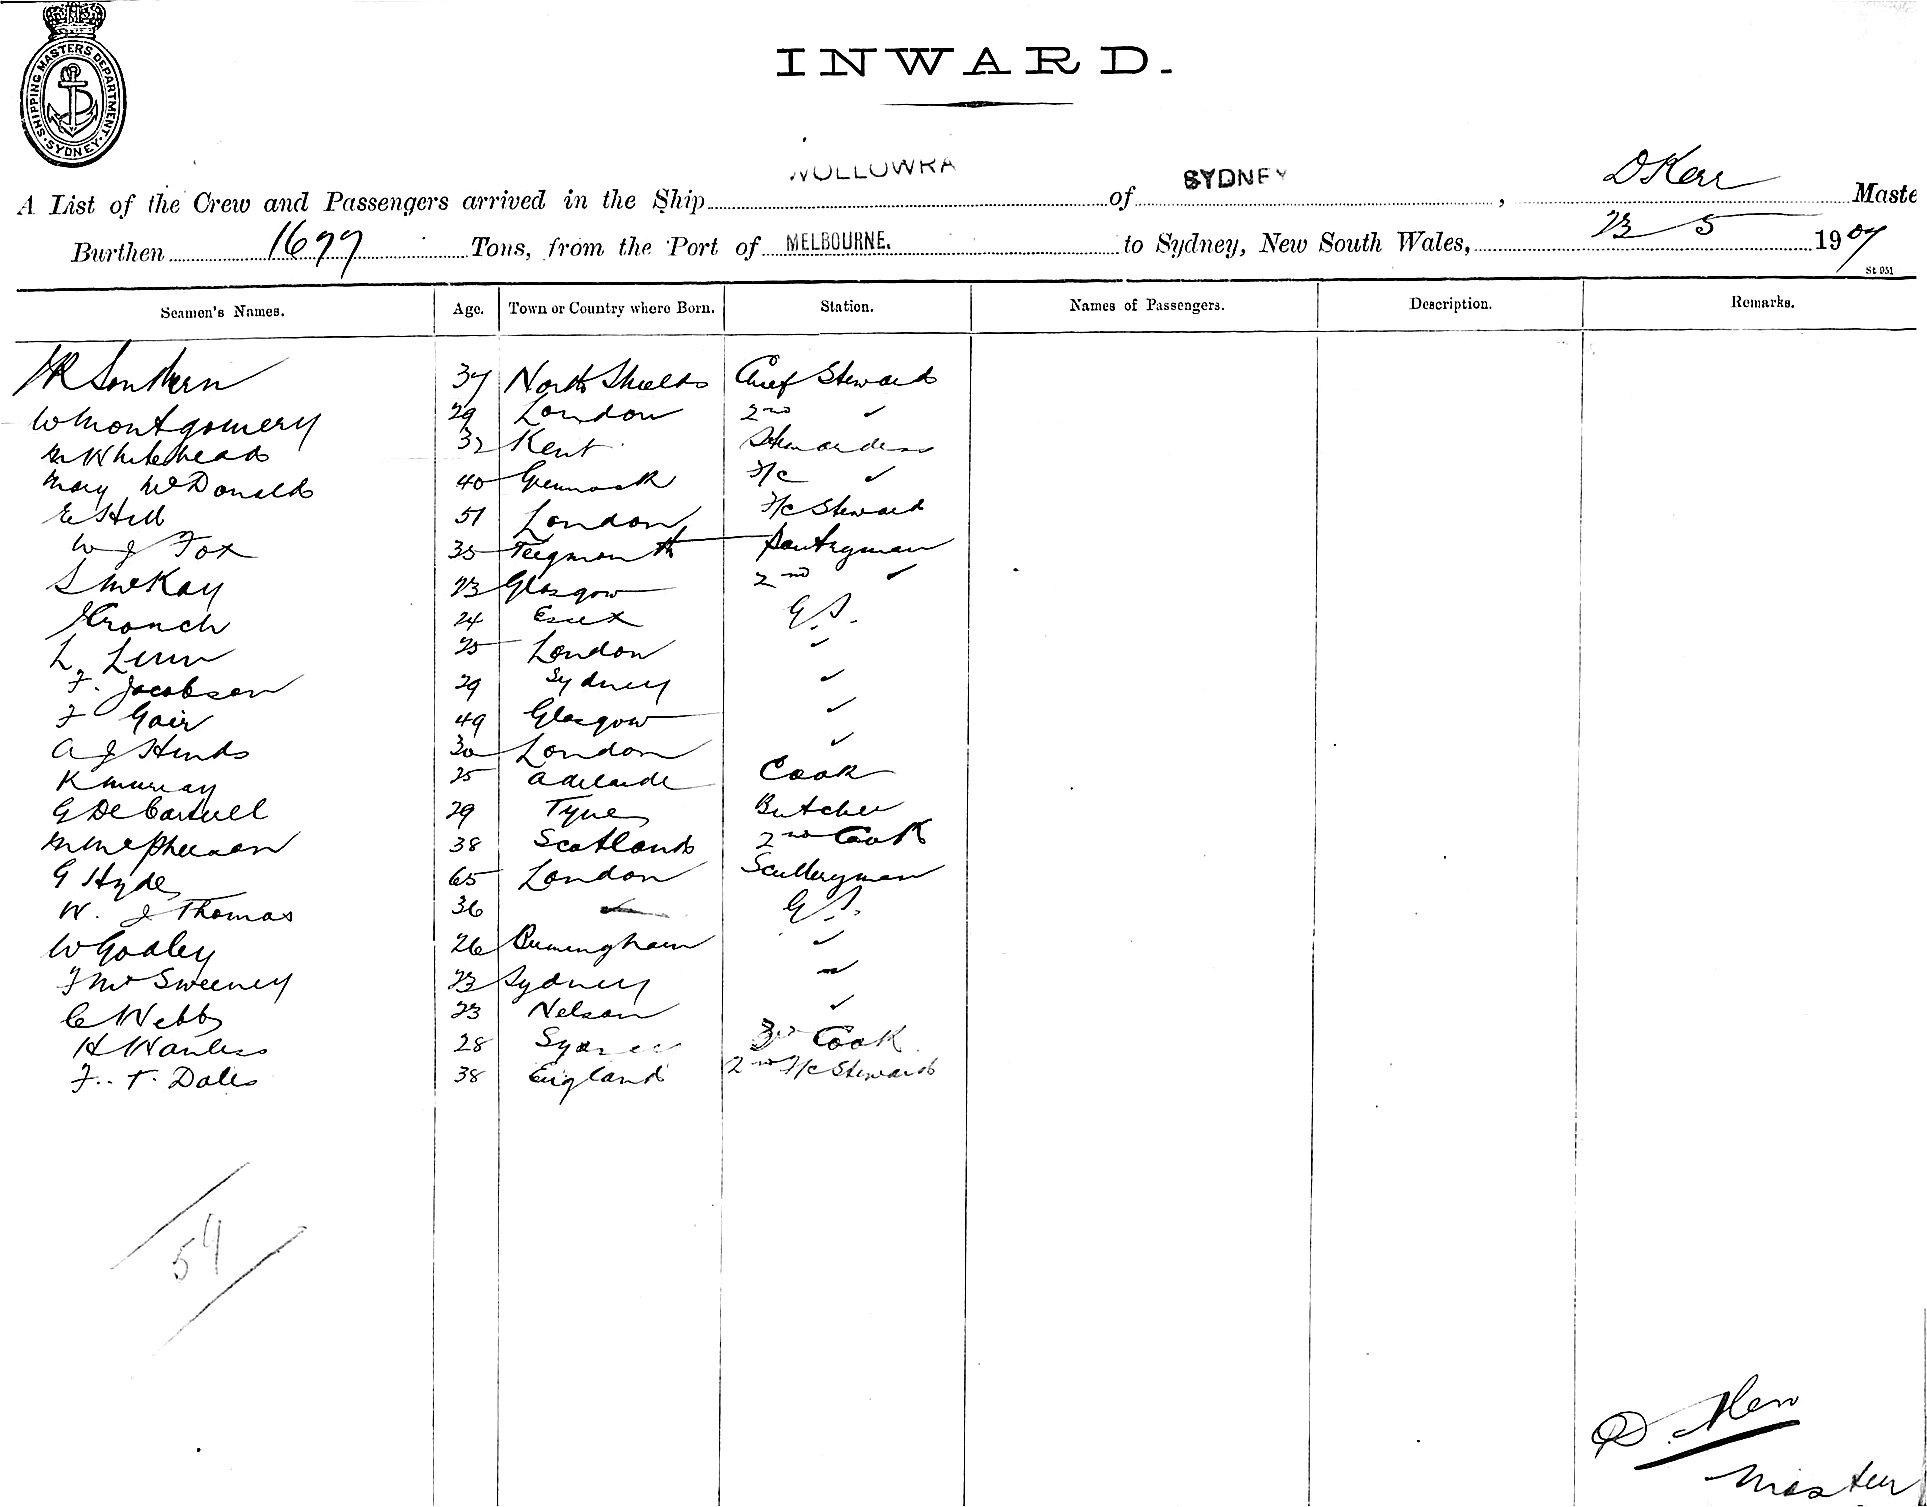 SHIPPING MASTERS DEPARTMENT. SYDNEY.
INWARD.
A List of the Crew and Passengers arrived in the Ship WOLLOWRA of SYDNEY, D Kerr Maste
Burthen 1699 Tons, from the Port of MELBOURNE. to Sydney, New South Wales, 23 5 1907
St 951
Seamen's Names. Age. Town or Country where Born. Station. Names of Passengers. Description. Remarks.
Southern 37 North Shields Chief Steward
W Montgomery 29 London 2nd ✓
M Whitehead 32 Kent Stewardess
Mary McDonald 40 Greenock F/c ✓
E Hill 51 London F/c Steward
W J Fox 35 Teignmouth Pantryman
S McKay 23 Glasgow 2nd ✓
Cronch 24 Essex G.S.
L. Lunn 25 London ✓
F. Jacobsen 29 Sydney ✓
F Gair 49 Glasgow ✓
A J Hinds 30 London ✓
K Murray 25 Adelaide Cook
G De Carteull 29 Tyne Butcher
M McPherson 38 Scotland 2nd Cook
G Hyde 65 London Sculleryman
W. J Thomas 36 ✓ G.S.
W Godley 26 Birmingham ✓
F McSweeney 23 Sydney ✓
C Webb 23 Nelson ✓
H Wanless 28 Sydney 3rd Cook
F. T. Dales 38 England 2nd F/c Steward
54
D. Kerr
Master